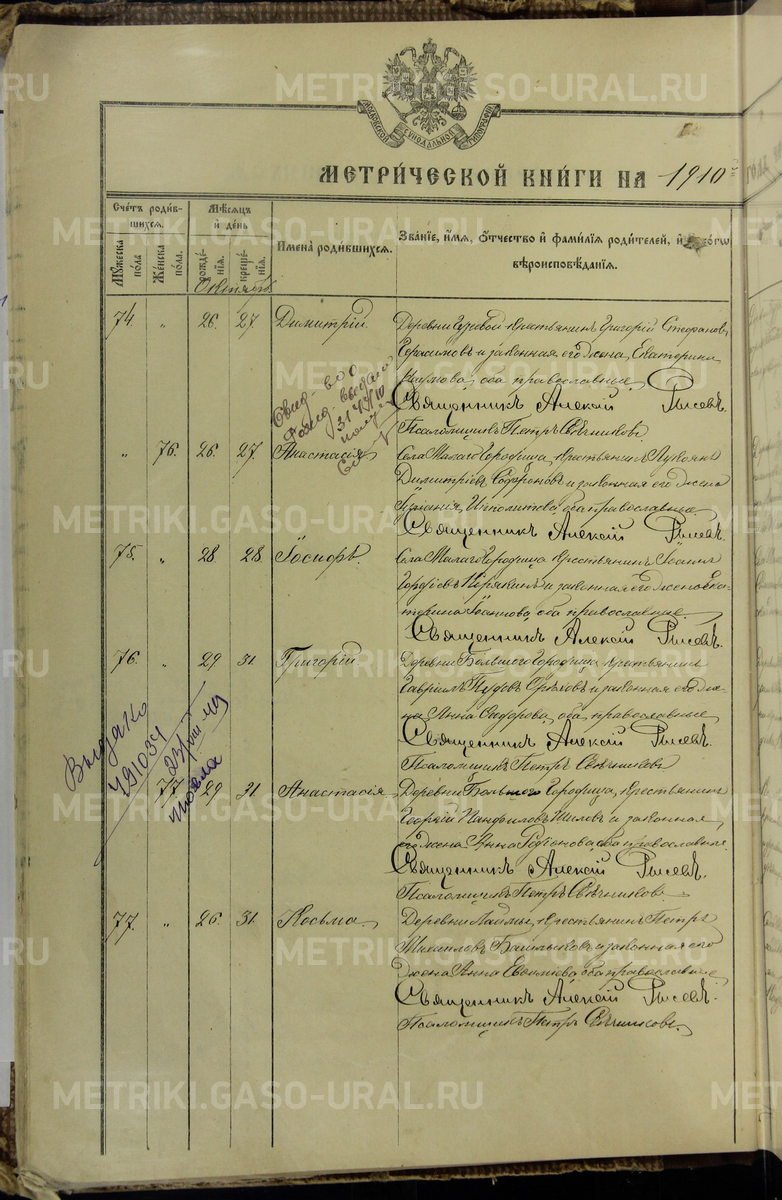 METRIKI.GASO-URAL.RU
МОСКОВСКОЙ СѴНОДАЛЬНОЙ ТИПОГРАФІИ
МЕТРИ́ЧЕСКОЙ КНИ́ГИ НА 1910
Сче́тъ роди́в-
шихся.
Мѣ́сяцъ
и҆ де́нь
Му́жеска по́ла
Же́нска по́ла.
рожде́нїя.
креще́нїя.
И҆мена̀ роди́вшихся.
Зва́нїе, и҆́мя, ѻ҆́тчество и҆ фами́лїя роди́телей, и҆
вѣроисповѣ́данїя.
Октябрь
74. " 26. 27 Димитрій. Деревни крестьянинъ Григорій Стефановъ
Герасимовъ и законная его жена, Екатерина
Наумова, оба православные.
Священникъ Алексій Рысевъ.
Псаломщикъ Петръ Свѣчниковъ.
" 76. 26. 27. Анастасія Села Малаго Городища, крестьянинъ Лукіанъ
Димитріевъ Софроновъ и законная его жена
Ипполитова, оба православные.
Священникъ Алексій Рысевъ.
75. " 28. 28. Іосифъ. Села Малаго Городища крестьянинъ Іоаннъ
и законная его жена Ека-
терина Іоаннова, оба православные.
Священникъ Алексій Рысевъ.
76. " 29 31 Григорій Деревни Большого Городища, крестьянинъ
Гавріилъ и законная его же-
на, Анна Сидорова, оба православные.
Священникъ Алексій Рысевъ.
Псаломщикъ Петръ Свѣчниковъ
77. 29 31 Анастасія Деревни Большого Городища, крестьянинъ
Георгій Панфиловъ Шиловъ и законная
его жена, Анна Родіонова, оба православные.
Священникъ Алексій Рысевъ.
Псаломщикъ Петръ Свѣчниковъ.
77. " 26. 31. Косьма Деревни Лаймы, крестьянинъ Петръ
Михаиловъ и законная его
жена, Анна Евфиміева, оба православные
Священникъ Алексій Рысевъ.
Псаломщикъ Петръ Свѣчниковъ.
Выдано